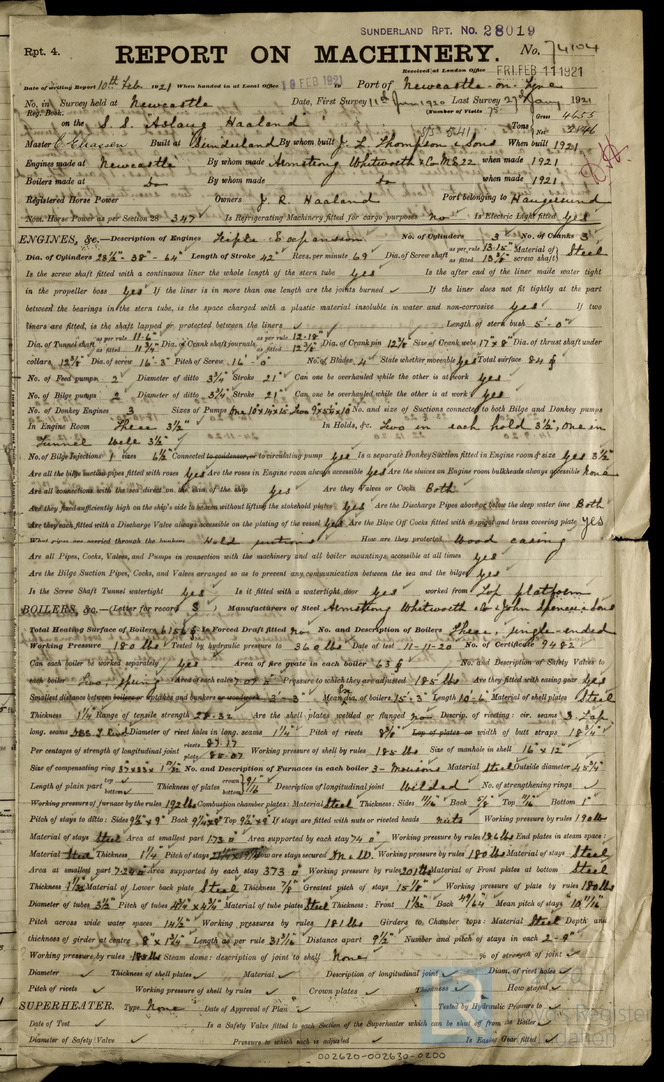 SUNDERLAND RPT. NO. 28019
Rpt. 4. REPORT ON MACHINERY. No. 74104
Received at London Office FRI. FEB 11 1921
Date of writing Report 10th Feb. 1921 When handed in at Local Office 10 FEB 1921 Port of Newcastle-on-Tyne
No. in Reg. Book. Survey held at Newcastle Date, First Survey 11th Jany 1920 Last Survey 27 Jany 1921
(Number of Visits 75)
on the S.S. Aslaug Haaland Tons Gross 4655 Net 2846
Master C. Eliassen Built at Sunderland By whom built J. L. Thompson & Sons When built 1921
Engines made at Newcastle By whom made Armstrong Whitworth & Co when made 1921
Boilers made at Do By whom made do when made 1921
Registered Horse Power Owners J. R. Haaland Port belonging to Haugesund
Nom. Horse Power as per Section 28 347 Is Refrigerating Machinery fitted for cargo purposes No Is Electric Light fitted Yes
ENGINES, &c.—Description of Engines Triple Expansion No. of Cylinders 3 No. of Cranks 3
Dia. of Cylinders 23½"-38"-64" Length of Stroke 42" Revs. per minute 69 Dia. of Screw shaft as per rule 13.15" as fitted 13⅜" Material of screw shaft Steel
Is the screw shaft fitted with a continuous liner the whole length of the stern tube yes Is the after end of the liner made water tight
in the propeller boss yes If the liner is in more than one length are the joints burned ✓ If the liner does not fit tightly at the part
between the bearings in the stern tube, is the space charged with a plastic material insoluble in water and non-corrosive yes If two
liners are fitted, is the shaft lapped or protected between the liners ✓ Length of stern bush 5'-0"
Dia. of Tunnel shaft as per rule 11.6" as fitted 11¾" Dia. of Crank shaft journals as per rule 12.18" as fitted Dia. of Crank pin Size of Crank webs 17"x8" Dia. of thrust shaft under
collars Dia. of screw 16'-3" Pitch of Screw 16'-0" No. of Blades 4 State whether moveable yes Total surface 84
No. of Feed pumps 2 Diameter of ditto 3¾" Stroke 21" Can one be overhauled while the other is at work yes
No. of Bilge pumps 2 Diameter of ditto 3¾" Stroke 21" Can one be overhauled while the other is at work yes
No. of Donkey Engines 3 Sizes of Pumps No. and size of Suctions connected to both Bilge and Donkey pumps
In Engine Room Three 3½" In Holds, &c. Two in each hold 3½", one in
Tunnel well 3½"
No. of Bilge Injections 1 sizes 6½" Connected to condenser, or to circulating pump yes Is a separate Donkey Suction fitted in Engine room & size yes 3½"
Are all the bilge suction pipes fitted with roses yes Are the roses in Engine room always accessible yes Are the sluices on Engine room bulkheads always accessible none
Are all connections with the sea direct on the skin of the ship yes Are they Valves or Cocks Both
Are they fixed sufficiently high on the ship's side to be seen without lifting the stokehold plates yes Are the Discharge Pipes above or below the deep water line Both
Are they each fitted with a Discharge Valve always accessible on the plating of the vessel yes Are the Blow Off Cocks fitted with a spigot and brass covering plate yes
What pipes are carried through the bunkers Hold suctions How are they protected Wood casing
Are all Pipes, Cocks, Valves, and Pumps in connection with the machinery and all boiler mountings, accessible at all times yes
Are the Bilge Suction Pipes, Cocks, and Valves arranged so as to prevent any communication between the sea and the bilges yes
Is the Screw Shaft Tunnel watertight yes Is it fitted with a watertight door yes worked from Top platform
BOILERS, &c.—(Letter for record S) Manufacturers of Steel Armstrong Whitworth & Co & John Spencer & Sons
Total Heating Surface of Boilers 6156 Is Forced Draft fitted no No. and Description of Boilers Three, single-ended
Working Pressure 180 lbs Tested by hydraulic pressure to 360 lbs Date of test 11-11-20 No. of Certificate 9482
Can each boiler be worked separately yes Area of fire grate in each boiler 63 No. and Description of Safety Valves to
each boiler Two, spring Area of each valve 7.07 Pressure to which they are adjusted 185 lbs Are they fitted with easing gear yes
Smallest distance between boilers or uptakes and bunkers or woodwork 2'-3" Mean dia. of boilers 15'-3" Length 10'-6" Material of shell plates Steel
Thickness 1¼" Range of tensile strength 28-32 Are the shell plates welded or flanged no Descrip. of riveting: cir. seams 3 Lap
long. seams Diameter of rivet holes in long. seams 1¼" Pitch of rivets 8¾" Lap of plates or width of butt straps 18¾"
Per centages of strength of longitudinal joint rivets 87.17 plate Working pressure of shell by rules 185 lbs Size of manhole in shell 16"x12"
Size of compensating ring No. and Description of Furnaces in each boiler 3-Morisons Material Steel Outside diameter 45¾"
Length of plain part top bottom Thickness of plates crown bottom Description of longitudinal joint Welded No. of strengthening rings ✓
Working pressure of furnace by the rules 192 lbs Combustion chamber plates: Material Steel Thickness: Sides Back Top Bottom 1"
Pitch of stays to ditto: Sides Back Top If stays are fitted with nuts or riveted heads nuts Working pressure by rules 190 lbs
Material of stays Steel Area at smallest part 1.73 Area supported by each stay 74 Working pressure by rules End plates in steam space:
Material Steel Thickness 1¼" Pitch of stays How are stays secured Working pressure by rules 180 lbs Material of stays Steel
Area at smallest part Area supported by each stay 373 Working pressure by rules 201 lbs Material of Front plates at bottom Steel
Thickness Material of Lower back plate Steel Thickness ⅞" Greatest pitch of stays Working pressure of plate by rules 180 lbs
Diameter of tubes 3½" Pitch of tubes Material of tube plates Steel Thickness: Front Back Mean pitch of stays
Pitch across wide water spaces 14½" Working pressures by rules 181 lbs Girders to Chamber tops: Material Steel Depth and
thickness of girder at centre 8"x1¾" Length as per rule Distance apart 9½" Number and pitch of stays in each 2-9"
Working pressure by rules 185 lbs Steam dome: description of joint to shell None % of strength of joint ✓
Diameter ✓ Thickness of shell plates ✓ Material ✓ Description of longitudinal joint ✓ Diam. of rivet holes ✓
Pitch of rivets ✓ Working pressure of shell by rules ✓ Crown plates ✓ Thickness ✓ How stayed ✓
SUPERHEATER. Type None Date of Approval of Plan ✓ Tested by Hydraulic Pressure to ✓
Date of Test ✓ Is a Safety Valve fitted to each Section of the Superheater which can be shut off from the Boiler ✓
Diameter of Safety Valve ✓ Pressure to which each is adjusted ✓ Is Easing Gear fitted ✓
Lloyd's Register
Foundation
002620-002630-0200